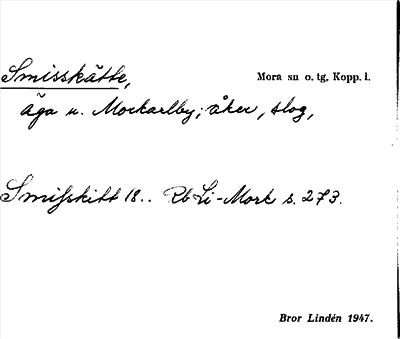 Smisskätte, Mora sn o. tg, Kopp. l.
äga u. Morkarlby; åker, slog,
Smisskitt 18.. Rb Li-Mork s. 273.
Bror Lindén 1947.